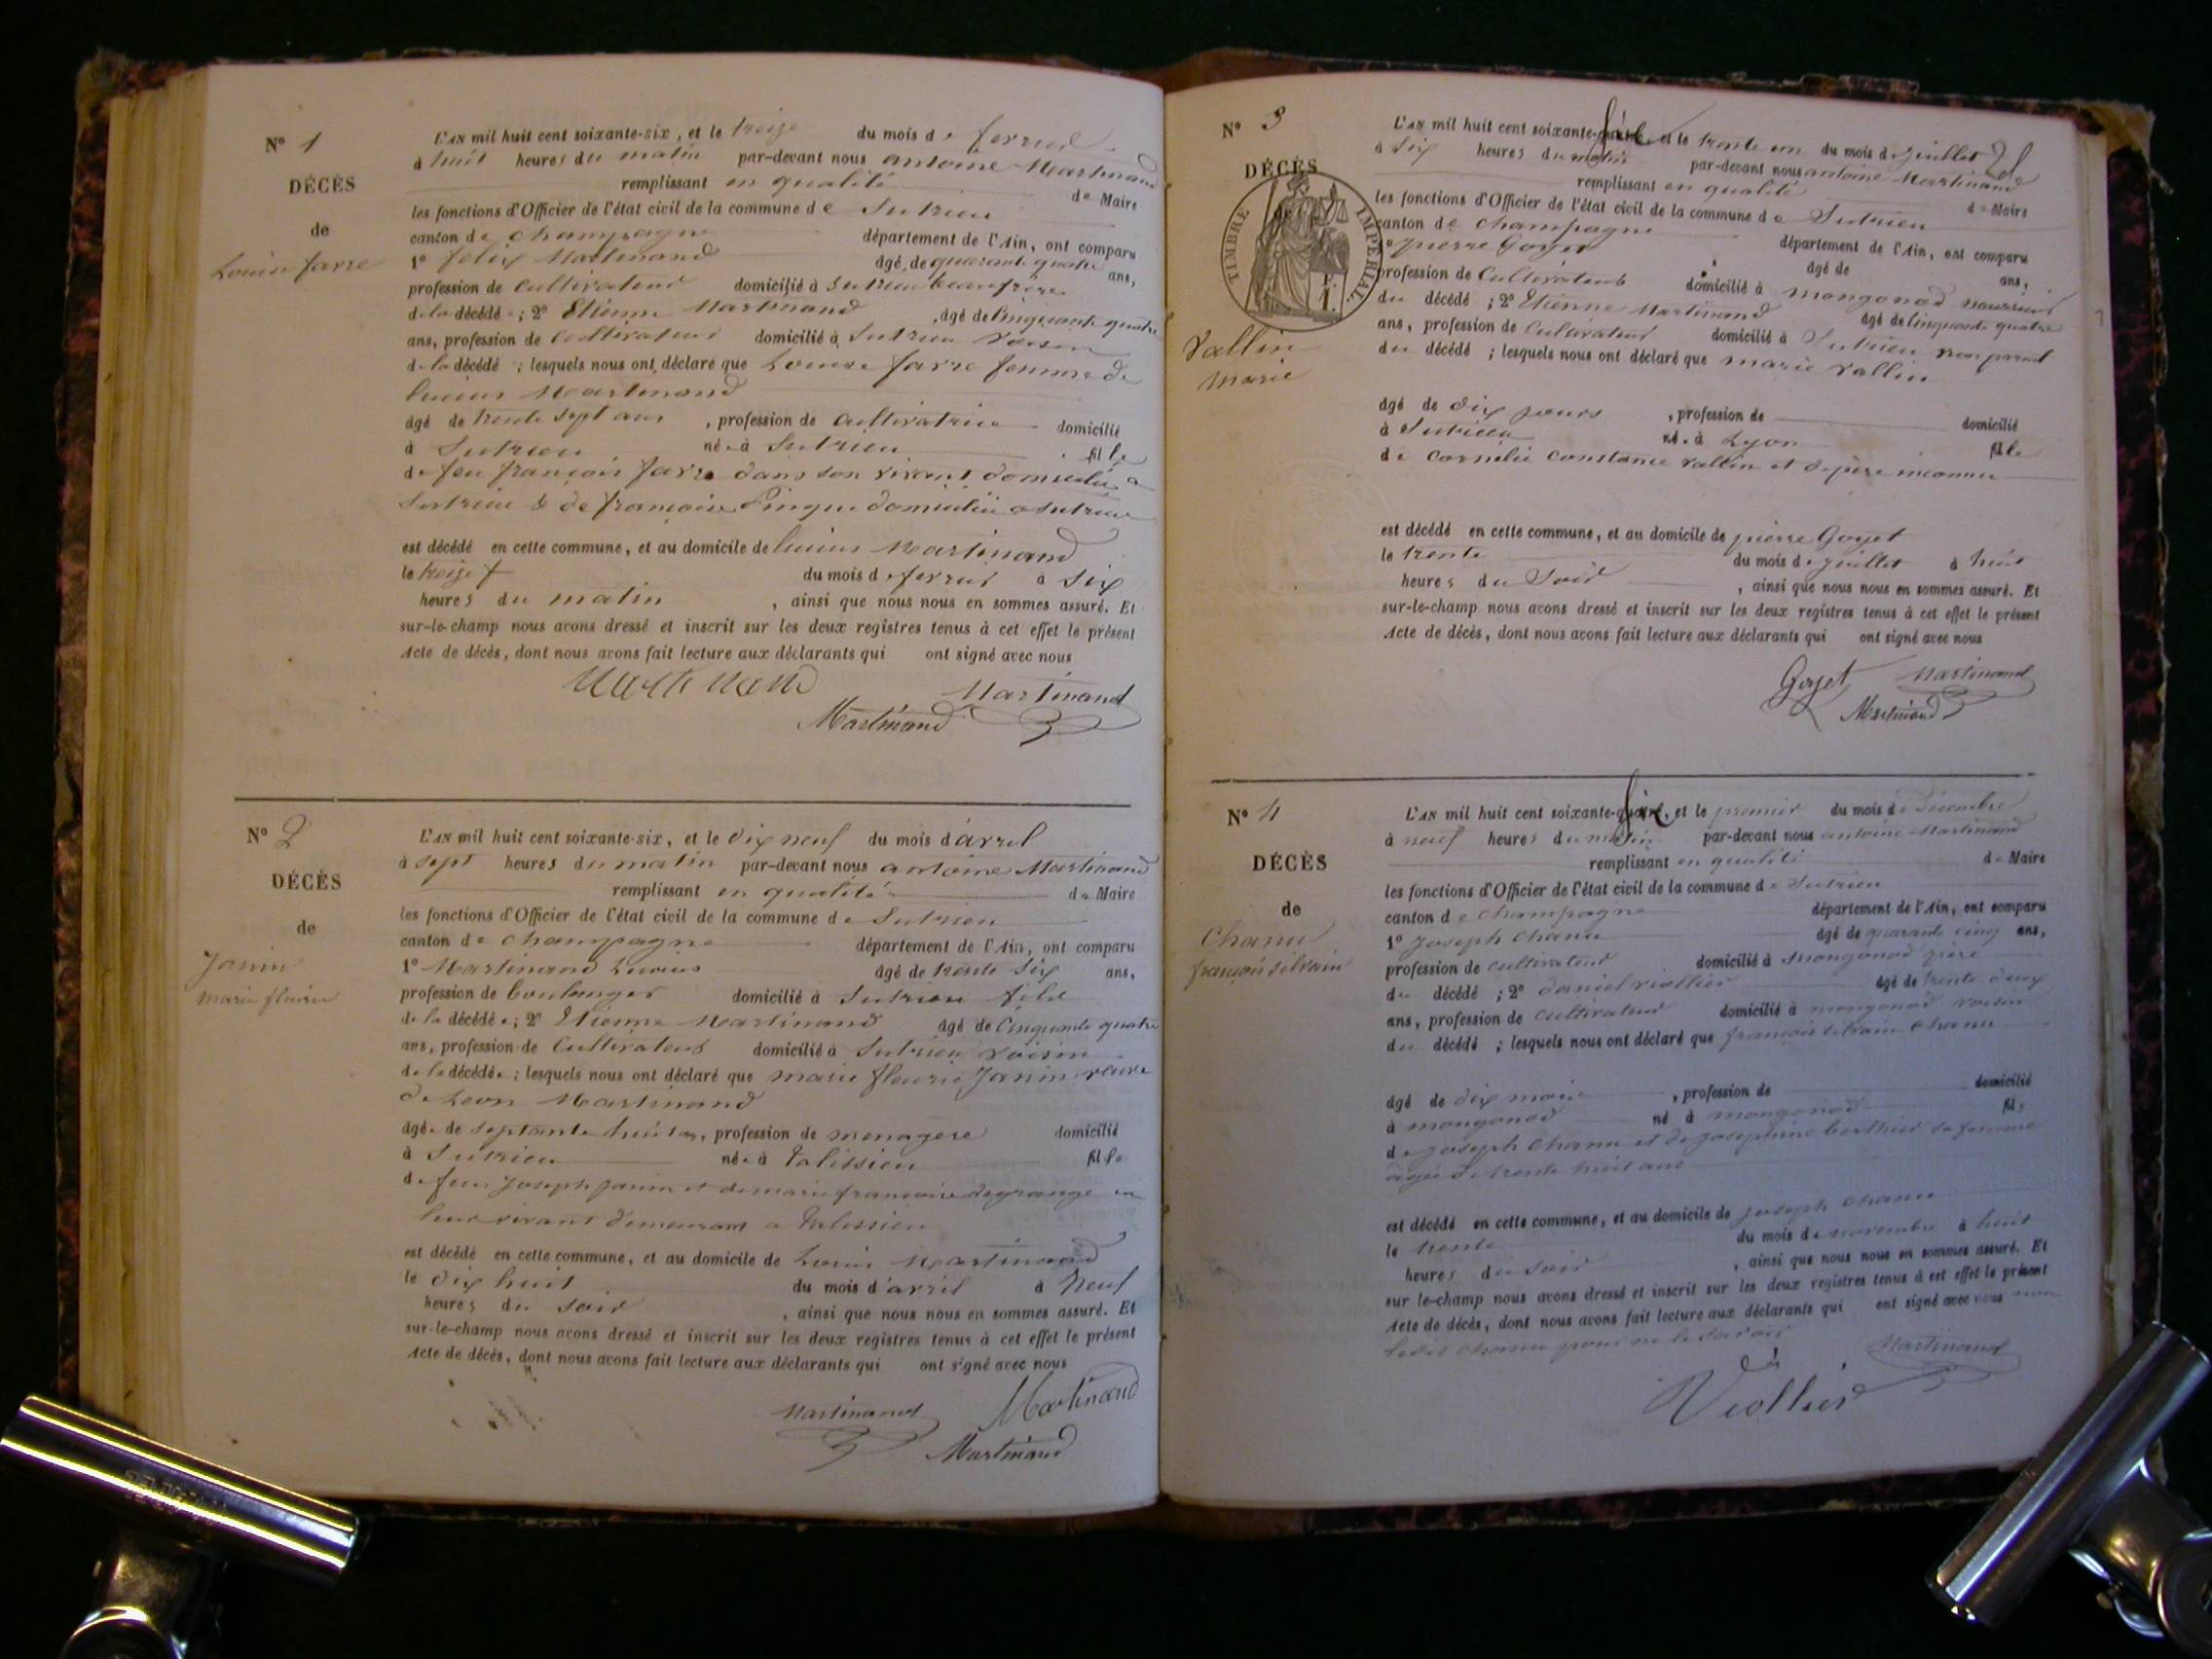 N° 1
DÉCÈS
de
Louise farre
L'AN mil huit cent soixante-six, et le treize du mois de fevrier
à huit heures du matin par-devant nous antoine Martinand
remplissant en qualité de Maire
les fonctions d'Officier de l'état civil de la commune de Sutrieu
canton de champagne département de l'Ain, ont comparu
1° felix Martinand âgé de quarante quatre ans,
profession de cultivateur domicilié à Sutrieu beaufrère
de la décédée ; 2° Etienne Martinand âgé de cinquante quatre
ans, profession de cultivateur domicilié à Sutrieu voisin
de la décédé ; lesquels nous ont déclaré que Louise farre femme de
lucius Martinand
âgé de trente sept ans , profession de cultivatrice domicilié
à Sutrieu née à Sutrieu fille
de feu françois farre dans son vivant domicilié a
Sutrieu & de françoise Pingue domiciliée a Sutrieu
est décédé en cette commune, et au domicile de lucius Martinand
le treize du mois de fevrier à six
heures du matin , ainsi que nous nous en sommes assuré. Et
sur-le-champ nous avons dressé et inscrit sur les deux registres tenus à cet effet le présent
Acte de décès, dont nous avons fait lecture aux déclarants qui ont signé avec nous
Martinand Martinand
Martinand
N° 2
DÉCÈS
de
Janin
marie fleurie
L'AN mil huit cent soixante-six, et le dix neuf du mois d'avril
à sept heures du matin par-devant nous antoine Martinand
remplissant en qualité de Maire
les fonctions d'Officier de l'état civil de la commune de Sutrieu
canton de champagne département de l'Ain, ont comparu
1° Martinand Lucius âgé de trente six ans,
profession de boulanger domicilié à Sutrieu fils
de la décédée ; 2° Etienne Martinand âgé de cinquante quatre
ans, profession de cultivateur domicilié à Sutrieu voisin
de la décédée ; lesquels nous ont déclaré que marie fleurie Janin veuve
de Leon Martinand
âgée de septante huit ans, profession de menagere domicilié
à Sutrieu née à talissieu fille
de feu Joseph Janin et de marie francoise degrange en
leur vivant demeurant a talissieu
est décédé en cette commune, et au domicile de Louis Martinand
le dix huit du mois d'avril à neuf
heures du soir , ainsi que nous nous en sommes assuré. Et
sur-le-champ nous avons dressé et inscrit sur les deux registres tenus à cet effet le présent
Acte de décès, dont nous avons fait lecture aux déclarants qui ont signé avec nous
Martinand Martinand
Martinand
N° 3
DÉCÈS
TIMBRE IMPÉRIAL
Vallin
marie
L'AN mil huit cent soixante-six et le trente un du mois de juillet
à six heures du matin par-devant nous antoine Martinand
remplissant en qualité de Maire
les fonctions d'Officier de l'état civil de la commune de Sutrieu
canton de champagne département de l'Ain, ont comparu
1° pierre Goyet âgé de ans,
profession de cultivateur domicilié à mongonod nourricier
du décédé ; 2° Etienne Martinand âgé de cinquante quatre
ans, profession de cultivateur domicilié à Sutrieu non parent
du décédé ; lesquels nous ont déclaré que marie Vallin
âgé de dix jours , profession de domicilié
à Sutrieu née à Lyon fille
de cornelie constance vallin et de père inconnu
est décédé en cette commune, et au domicile de pierre Goyet
le trente du mois de juillet à huit
heures du soir , ainsi que nous nous en sommes assuré. Et
sur-le-champ nous avons dressé et inscrit sur les deux registres tenus à cet effet le présent
Acte de décès, dont nous avons fait lecture aux déclarants qui ont signé avec nous
Goyet Martinand
Martinand
N° 4
DÉCÈS
de
Chanu
françois silvain
L'AN mil huit cent soixante-six, et le premier du mois de decembre
à neuf heures du matin par-devant nous antoine Martinand
remplissant en qualité de Maire
les fonctions d'Officier de l'état civil de la commune de Sutrieu
canton de champagne département de l'Ain, ont comparu
1° Joseph chanu âgé de quarante cinq ans,
profession de cultivateur domicilié à mongonod père
du décédé ; 2° daniel viollier âgé de trente deux
ans, profession de cultivateur domicilié à mongonod voisin
du décédé ; lesquels nous ont déclaré que françois silvain chanu
âgé de dix mois , profession de domicilié
à mongonod né à mongonod fils
de joseph chanu et de josephine berthier sa femme
agée de trente huit ans
est décédé en cette commune, et au domicile de joseph chanu
le trente du mois de novembre à huit
heures du soir , ainsi que nous nous en sommes assuré. Et
sur le-champ nous avons dressé et inscrit sur les deux registres tenus à cet effet le présent
Acte de décès, dont nous avons fait lecture aux déclarants qui ont signé avec nous non
ledit chanu pour ne le savoir
Martinand
Viollier